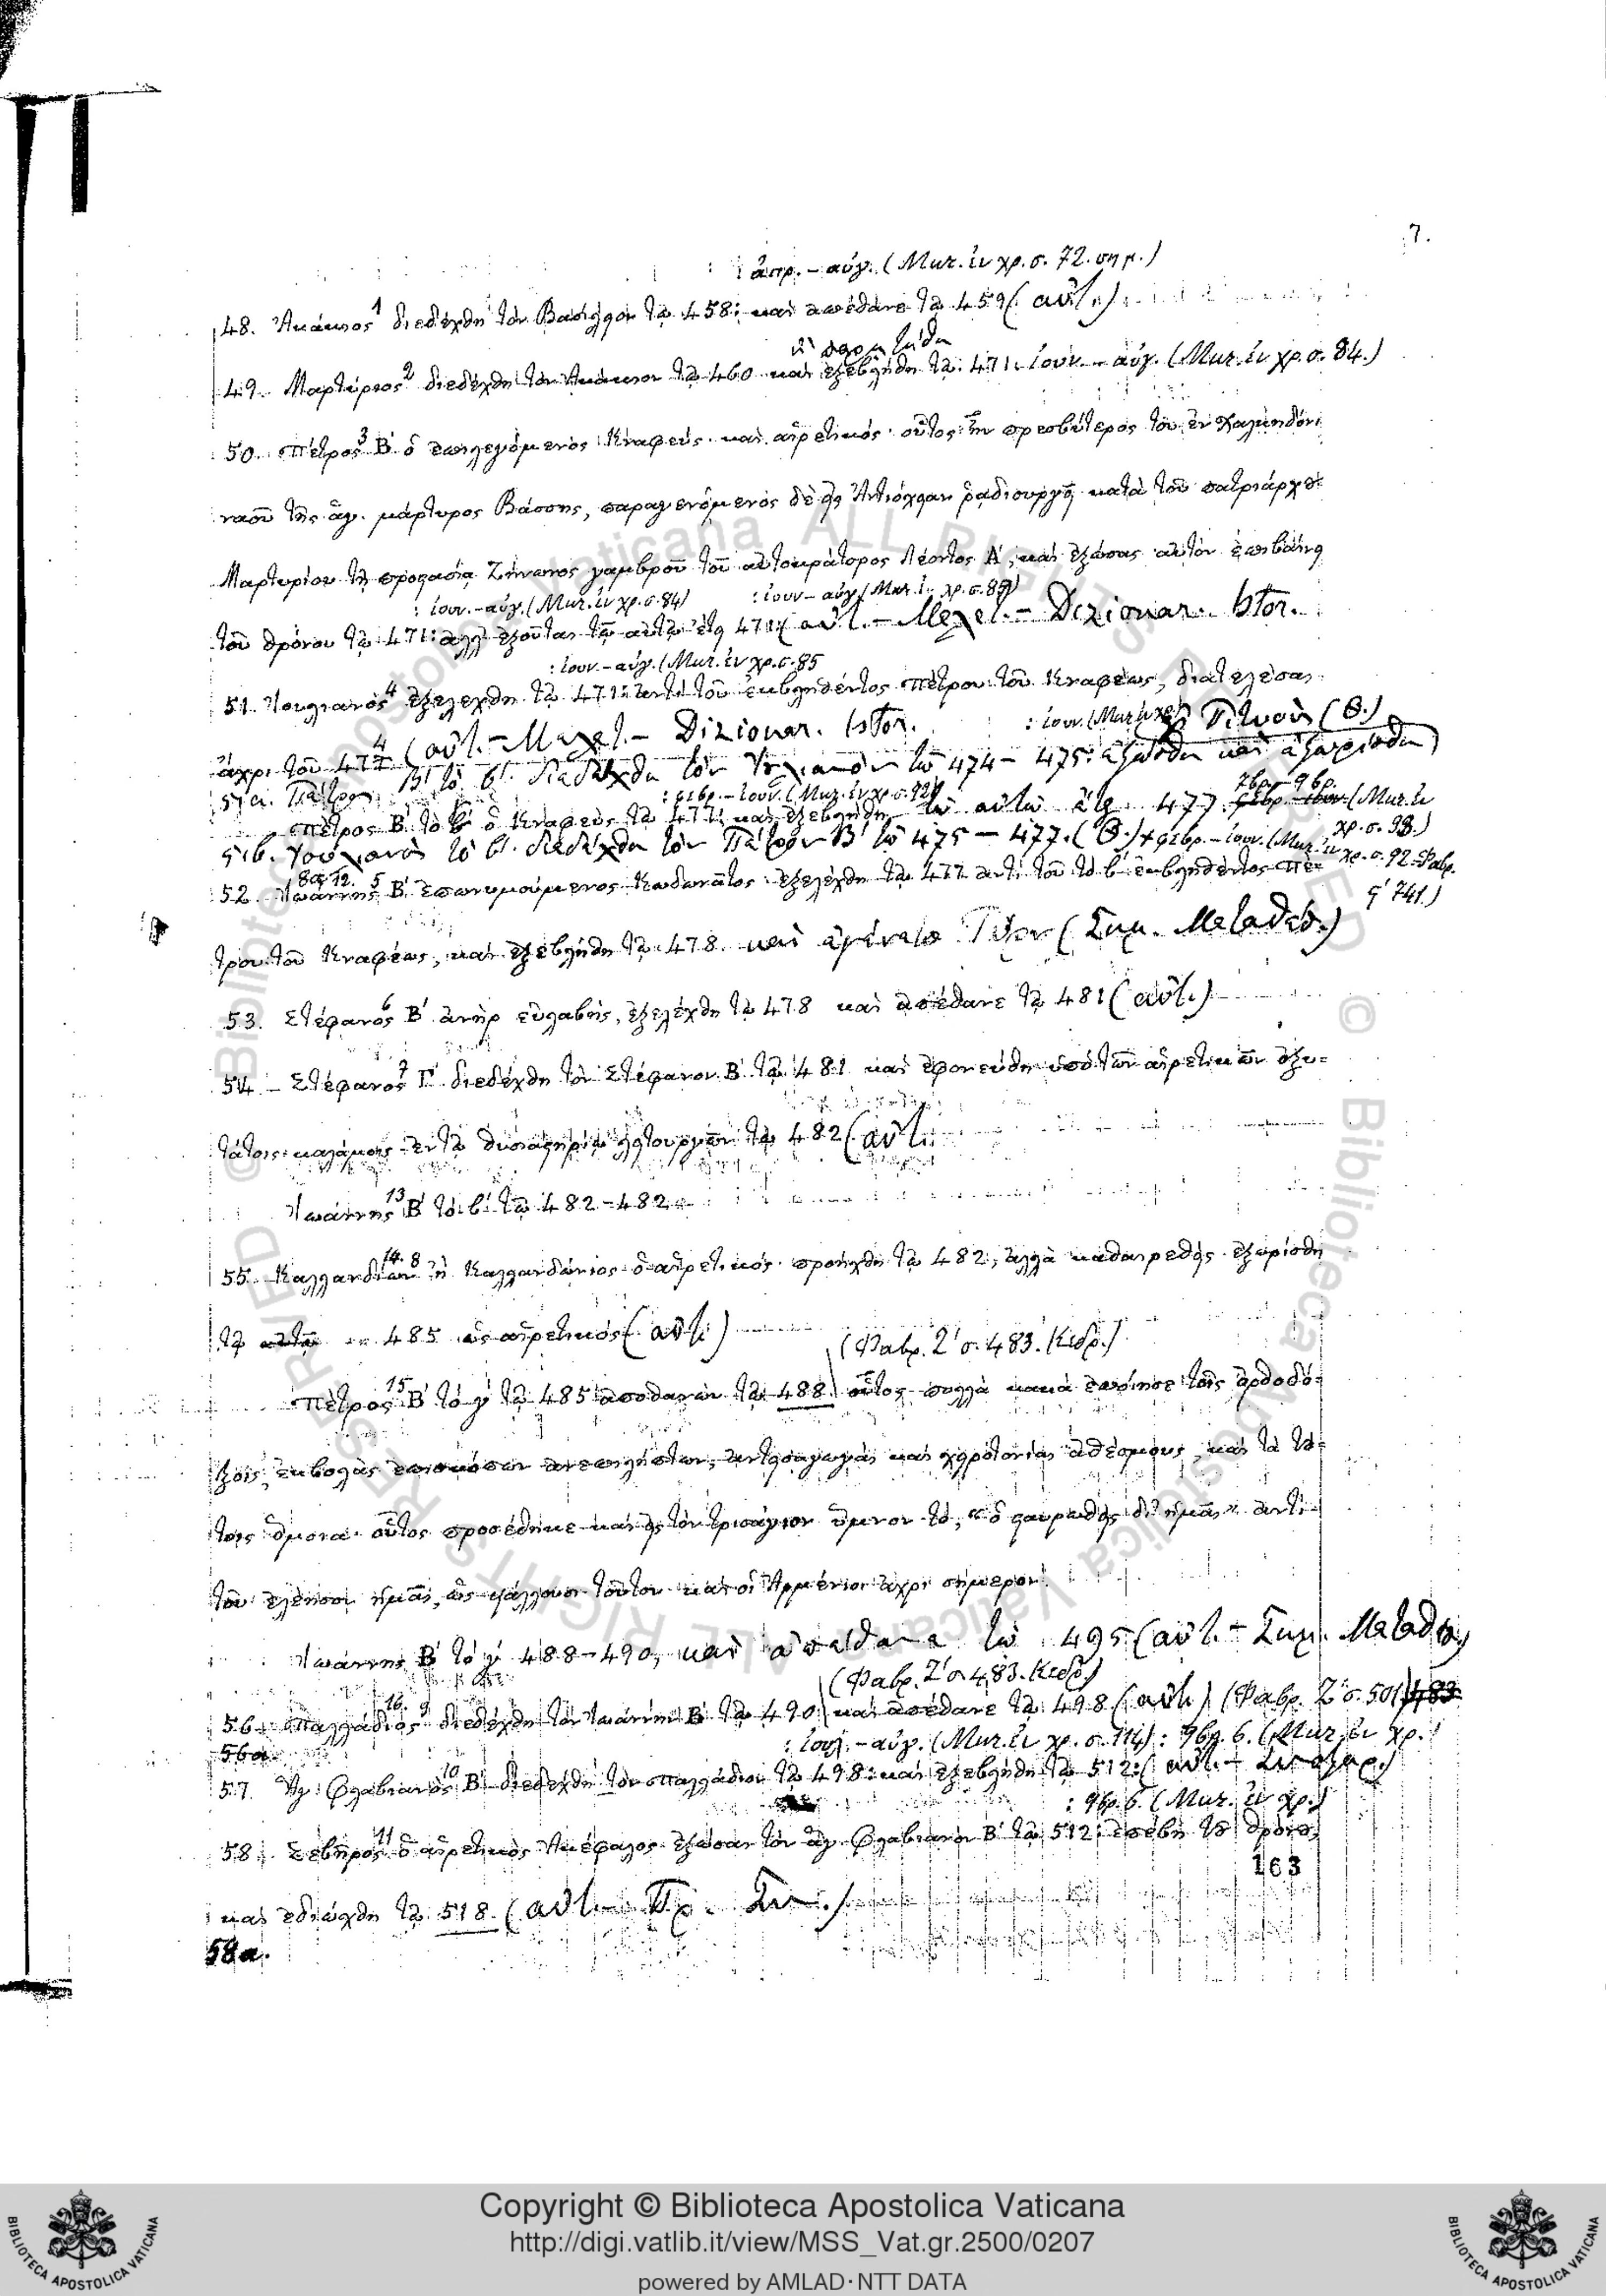 7.
: ἀπρ. – αὐγ. (Μυζ. ἐν χρ. σ. 72. σημ.)
48. Ἀκάκιος 1 διεδέχθη τὸν Βασίλειον τῷ 458: καὶ ἀπέθανε τῷ 459 (αὐτ.)
ἢ παρῃτήθη
49. Μαρτύριος 2 διεδέχθη τὸν Ἀκάκιον τῷ 460 καὶ ἐξεβλήθη τῷ 471: ἰουν. – αὐγ. (Μυζ. ἐν χρ. σ. 84.)
50. Πέτρος 3 Β΄ ὁ ἐπιλεγόμενος Κναφεύς καὶ αἱρετικός· οὗτος ἦν πρεσβύτερος τοῦ ἐν Χαλκηδόνι
ναοῦ τῆς ἁγ. μάρτυρος Βάσσης, παραγενόμενος δὲ εἰς Ἀντιόχειαν ῥαδιουργεῖ κατὰ τοῦ πατριάρχου
Μαρτυρίου τῇ προστασίᾳ Ζήνωνος γαμβροῦ τοῦ αὐτοκράτορος Λέοντος Α΄, καὶ ἐξώσας αὐτὸν ἐπιβαίνει
: ἰουν. – αὐγ. (Μυζ. ἐν χρ. σ. 84) : ἰουν – αὐγ. (Μυζ. ἐν χρ. σ. 85)
τοῦ θρόνου τῷ 471: ἀλλ' ἐξοῦται τῷ αὐτῷ ἔτει 471: (αὐτ. –
: ἰουν. – αὐγ. (Μυζ. ἐν χρ. σ. 85
51. Ἰουλιανός 4 ἐξελέχθη τῷ 471: ἀντὶ τοῦ ἐκβληθέντος Πέτρου τοῦ Κναφέως, διατελέσας
ἄχρι τοῦ 474 (αὐτ. – Dizionar. Istor.
51α. Πέτρος Β΄ τὸ β΄. διεδέχθη τὸν Ἰουλιανὸν τῷ 474 – 475: ἐξώσθη καὶ ἐξωρίσθη
Πέτρος Β΄ τὸ β΄ ὁ Κναφεὺς τῷ 477: καὶ ἐξεβλήθη τῷ αὐτῷ ἔτει 477
51β. Ἰουλιανὸς τὸ β΄. διεδέχθη τὸν Πέτρον Β΄ τῷ 475 – 477. (Θ.) + φεβρ. – ἰουν. (Μυζ. ἐν χρ. σ. 92
52. Ἰωάννης 5 Β΄ ἐπονομούμενος Κωδωνᾶτος ἐξελέχθη τῷ 477 ἀντὶ τοῦ τὸ β΄ ἐκβληθέντος Πέ-
τρου τοῦ Κναφέως, καὶ ἐξεβλήθη τῷ 478. καὶ ἐγένετο
53. Στέφανος 6 Β΄ ἀνὴρ εὐλαβής, ἐξελέχθη τῷ 478 καὶ ἀπέθανε τῷ 481 (αὐτ.)
54. Στέφανος 7 Γ΄ διεδέχθη τὸν Στέφανον Β΄ τῷ 481 καὶ ἐφονεύθη ὑπὸ τῶν αἱρετικῶν ὀξυ-
τάτοις καλάμοις ἐν τῷ θυσιαστηρίῳ λειτουργῶν τῷ 482 (αὐτ.
Ἰωάννης 13 Β΄ τὸ β΄. τῷ 482 – 482
55. Καλλανδίων 14. 8 ἢ Καλλανδώνιος ὁ αἱρετικός προήχθη τῷ 482, ἀλλὰ καθαιρεθεὶς ἐξωρίσθη
τῷ 485 ὡς αἱρετικός (αὐτ.) (Φαβρ. Ζ΄ σ. 483. Κεδρ.)
Πέτρος 15 Β΄ τὸ γ΄ τῷ 485 ἀποθανὼν τῷ 488 οὗτος πολλὰ κακὰ ἐποίησε τοῖς ὀρθοδό-
ξοις, ἐκβολὰς ἐπισκόπων ἀνεπιλήπτων, ἀντεισαγωγὰς καὶ χειροτονίας ἀθέσμους, καὶ τὰ τού-
τοις ὅμοια· οὗτος προσέθηκε καὶ εἰς τὸν τρισάγιον ὕμνον τὸ, «ὁ σταυρωθεὶς δι' ἡμᾶς» ἀντὶ
τοῦ ἐλέησον ἡμᾶς, ὡς ψάλλουσι τοῦτον καὶ οἱ Ἀρμένιοι ἄχρι σήμερον.
Ἰωάννης Β΄ τὸ γ΄ 488 – 490, καὶ ἀπέθανε τῷ 495 (αὐτ. –
(Φαβρ. Ζ΄ σ. 483. Κεδρ.)
56. Παλλάδιος 16. 9 διεδέχθη τὸν Ἰωάννην Β΄ τῷ 490 καὶ ἀπέθανε τῷ 498 (αὐτ.) (Φαβρ. Ζ΄ σ. 501
56α : ἰουλ. – αὐγ. (Μυζ. ἐν χρ. σ. 114) : 9βρ. 6. (Μυζ. ἐν χρ.
57. Ἁγ. Φλαβιανὸς 10 Β΄ διεδέχθη τὸν Παλλάδιον τῷ 498: καὶ ἐξεβλήθη τῷ 512: (αὐτ.
: 9βρ. 6. (Μυζ. ἐν χρ.)
58. Σεβῆρος 11 ὁ αἱρετικὸς Ἀκέφαλος ἐξώσας τὸν ἁγ. Φλαβιανὸν Β΄ τῷ 512: ἐπέβη τοῦ θρόνου,
163
καὶ ἐδιώχθη τῷ 518. (αὐτ.
58α.
Copyright © Biblioteca Apostolica Vaticana
http://digi.vatlib.it/view/MSS_Vat.gr.2500/0207
powered by AMLAD·NTT DATA
BIBLIOTECA APOSTOLICA VATICANA
BIBLIOTECA APOSTOLICA VATICANA